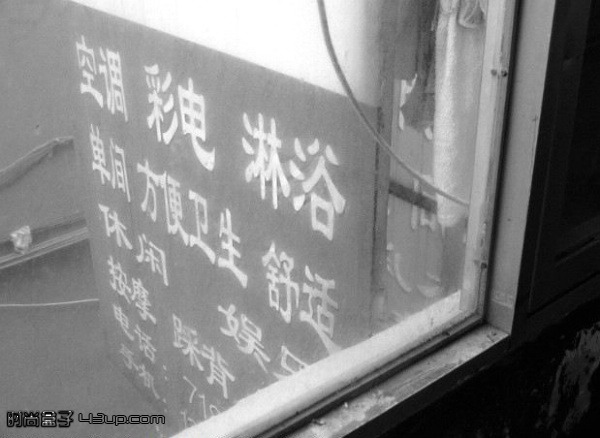 空调 彩电 淋浴
单间 方便卫生 舒适
休闲 娱
按摩 踩背
电话：71
手机：
时尚盒子 43up.com